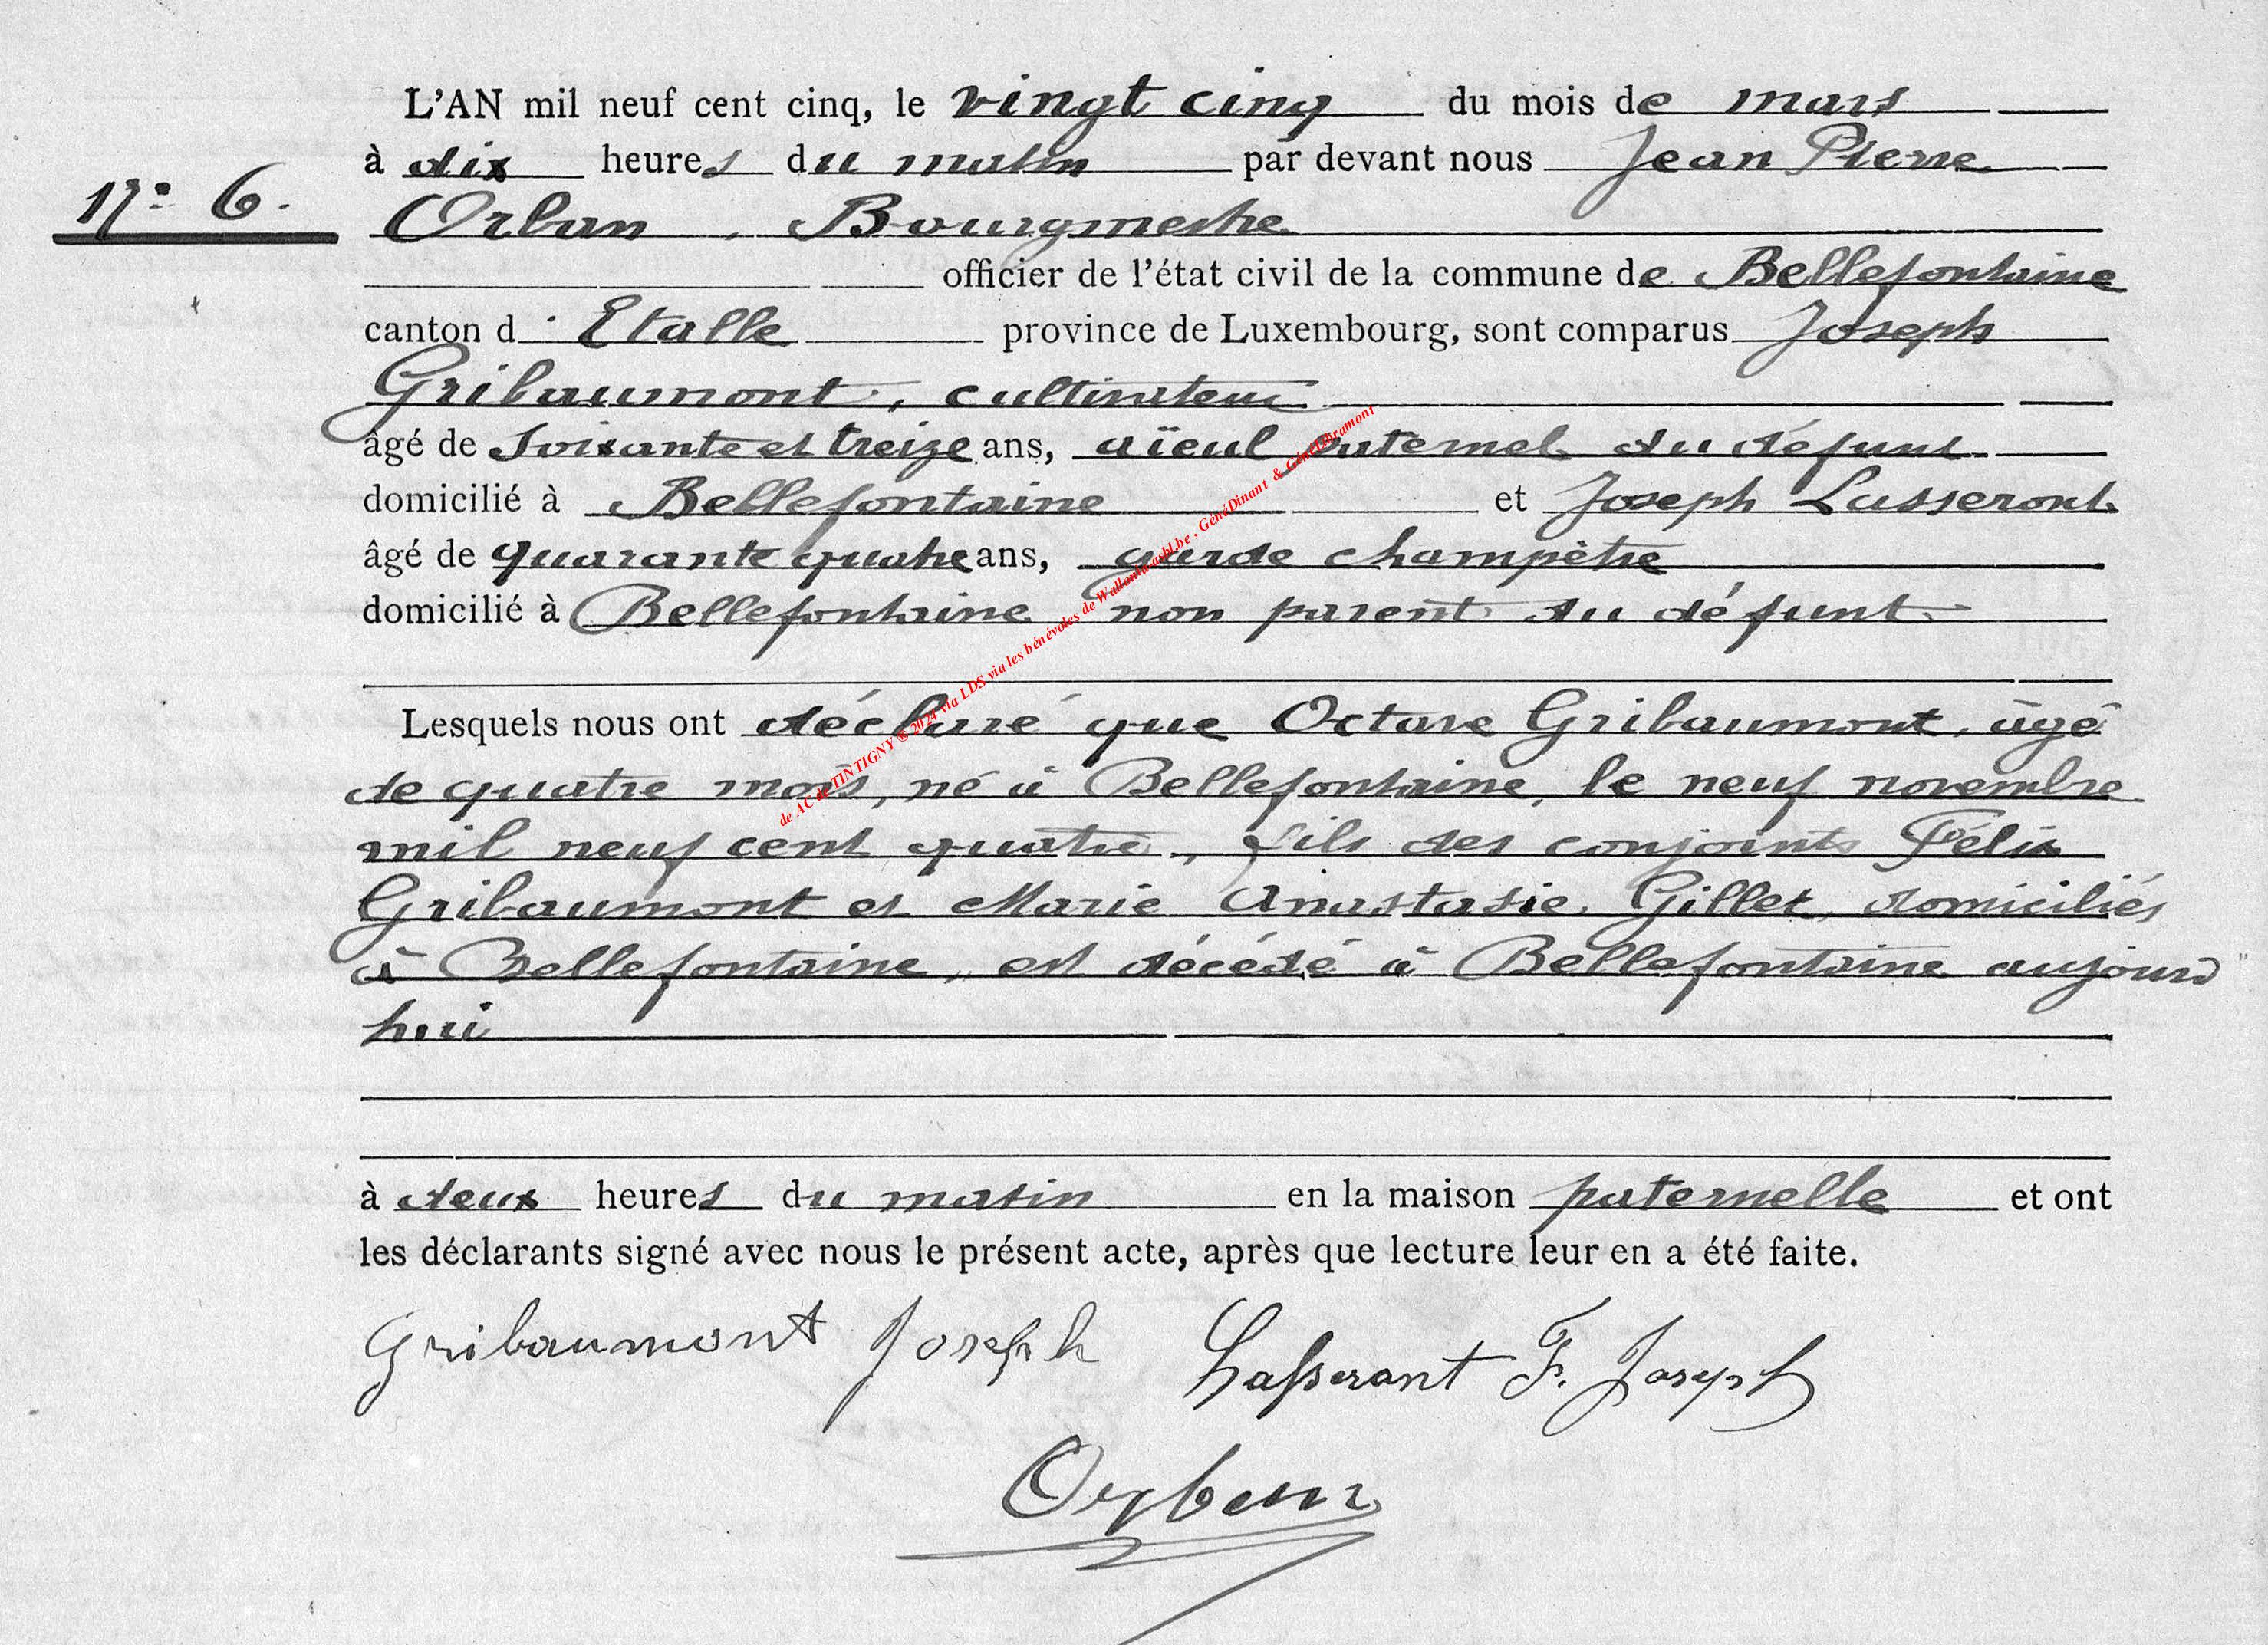 L'AN mil neuf cent cinq, le vingt cinq du mois de mars
à dix heures du matin par devant nous Jean Pierre
N° 6.
Orban, Bourgmestre
officier de l'état civil de la commune de Bellefontaine
canton d'Etalle province de Luxembourg, sont comparus Joseph
Gribaumont, cultivateur
âgé de soixante et treize ans, aïeul paternel du défunt
domicilié à Bellefontaine et Joseph Lasseront
âgé de quarante quatre ans, garde champêtre
domicilié à Bellefontaine non parent du défunt
Lesquels nous ont déclaré que Octave Gribaumont, âgé
de quatre mois, né à Bellefontaine, le neuf novembre
mil neuf cent quatre, fils des conjoints Félix
Gribaumont et Marie Anastasie Gillet, domiciliés
à Bellefontaine, est décédé à Bellefontaine aujourd
hui
à deux heures du matin en la maison paternelle et ont
les déclarants signé avec nous le présent acte, après que lecture leur en a été faite.
Gribaumont Joseph Lasserant F. Joseph
Orban
de AC de TINTIGNY ® 2024 via LDS via les bénévoles de Wallonia asbl.be, GénéDinant &